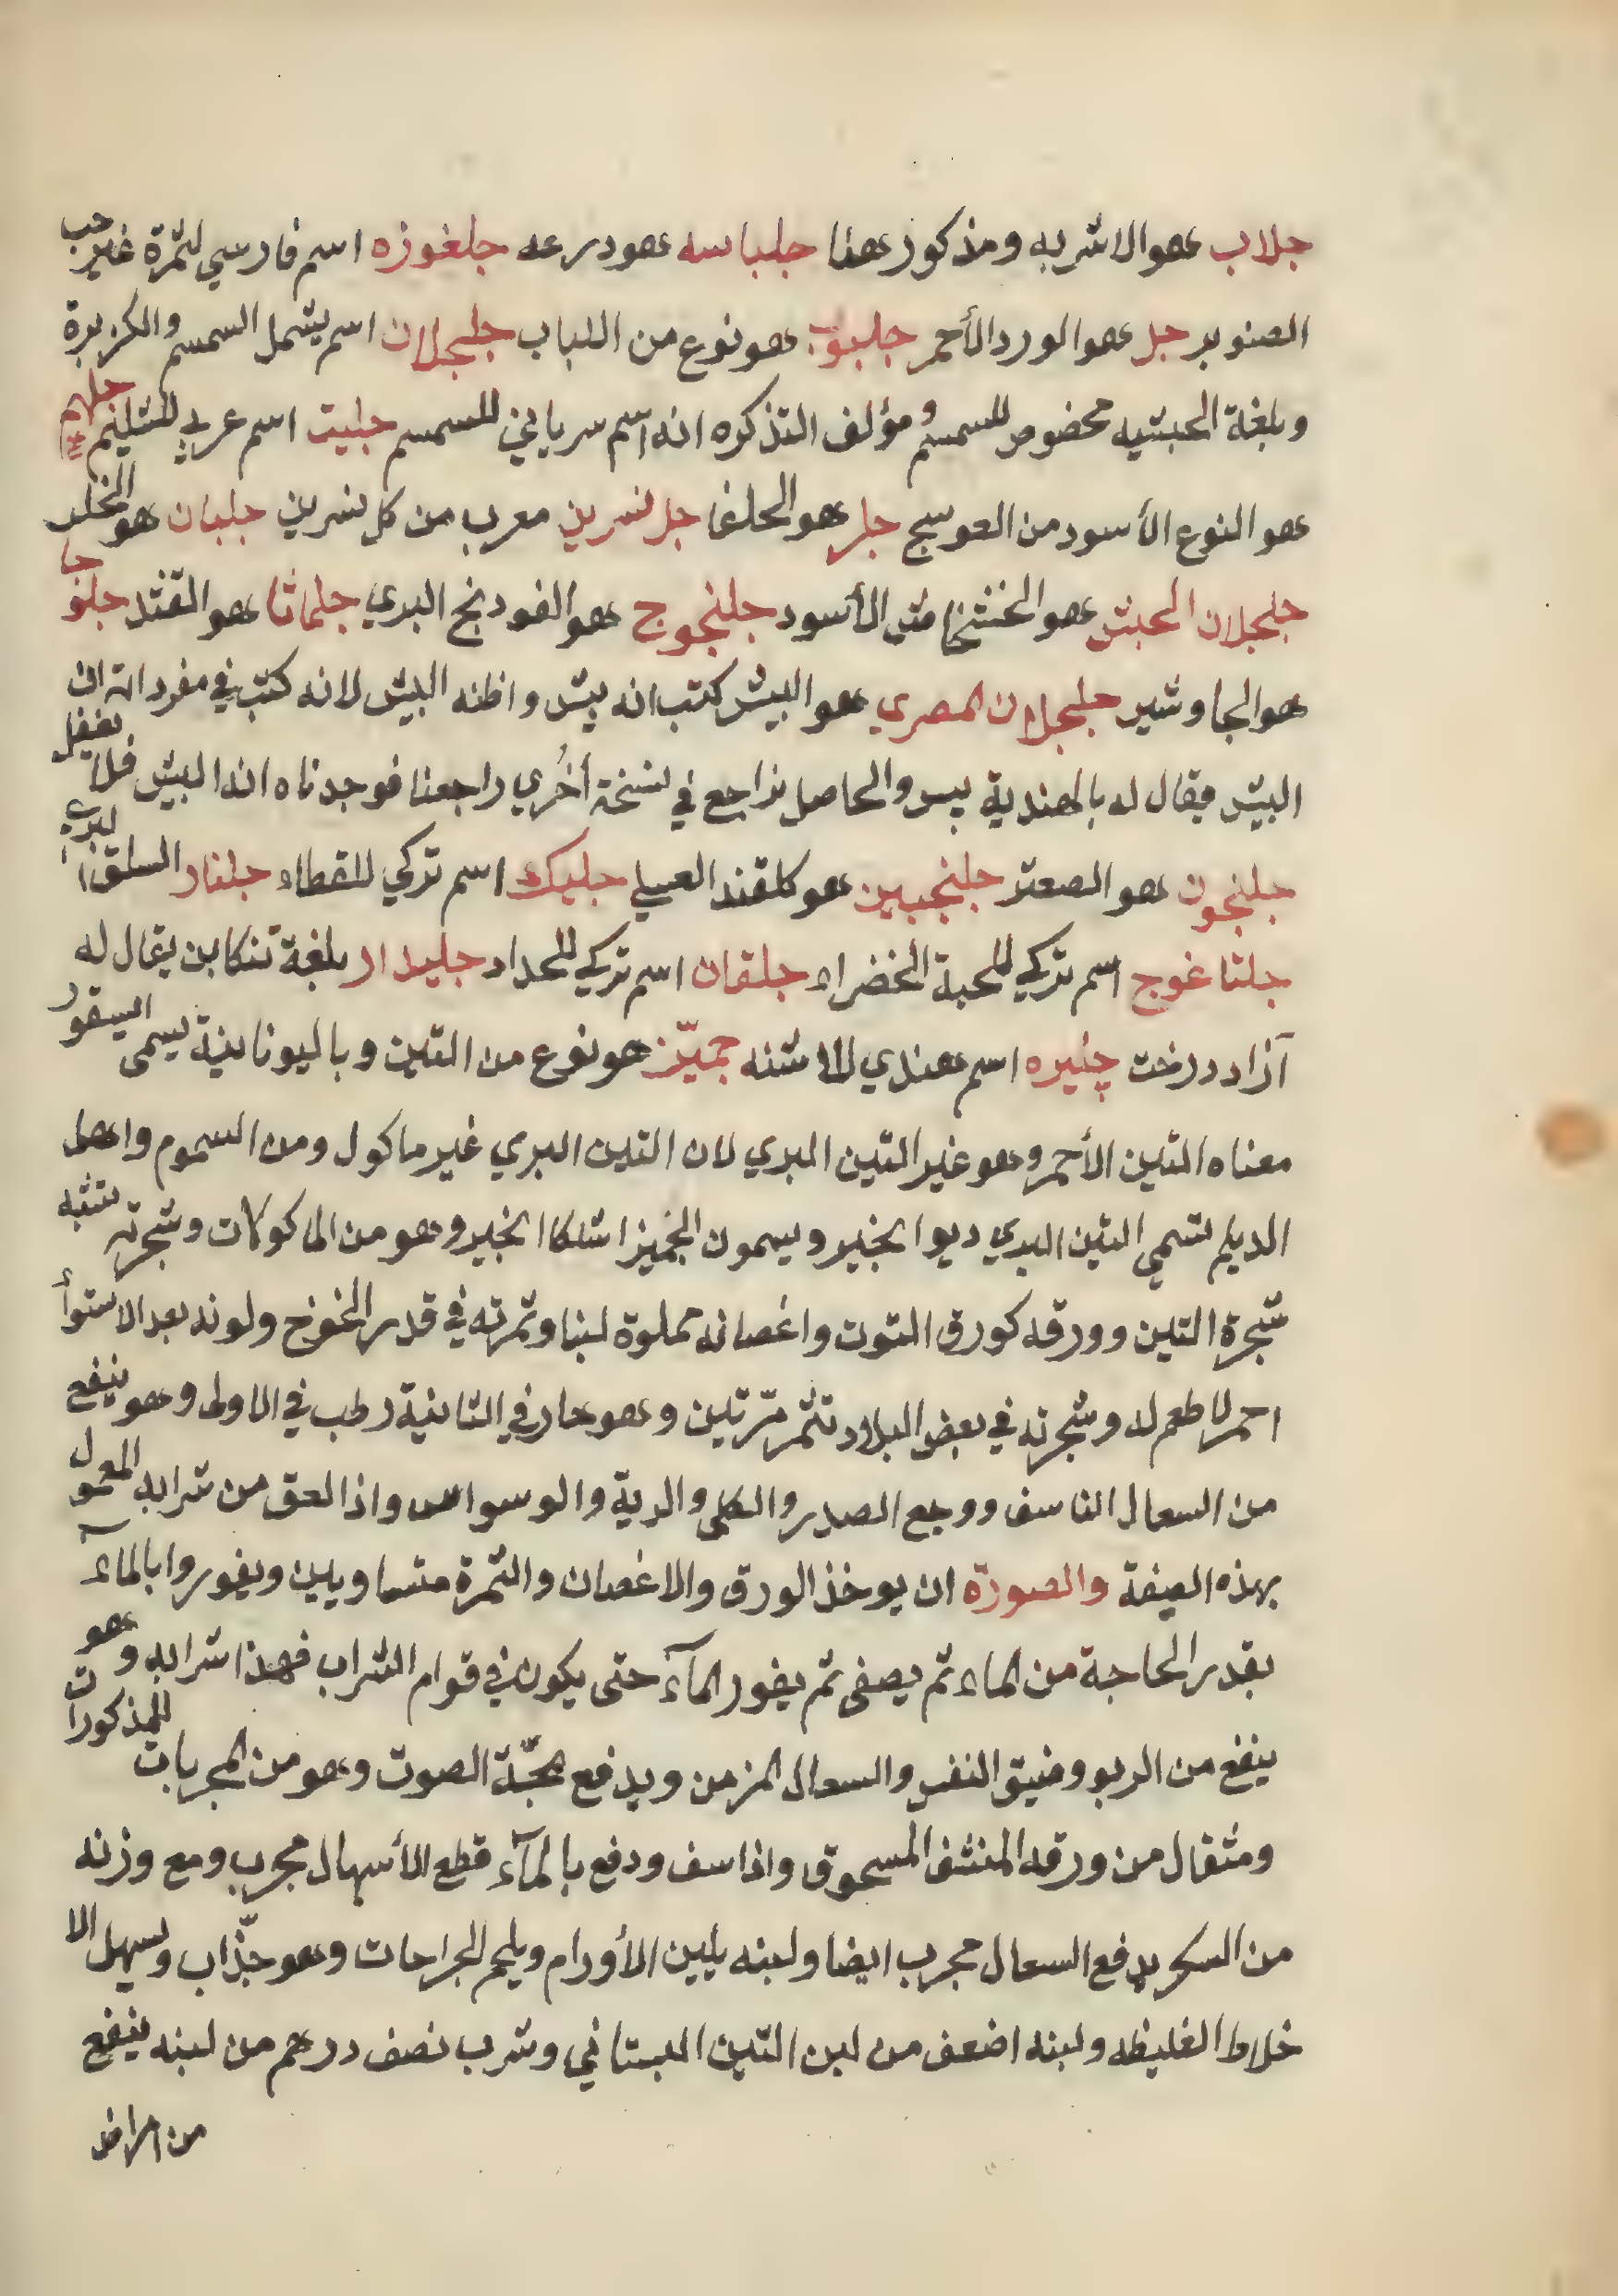 جلاب هو الاشربه ومذكور هنا جلباسه هو درعه جلغوزه اسم فارسي لثمرة غير حب
الصنوبر جل هو الورد الأحمر جلبوب هو نوع من اللباب جلجلان اسم يشمل السمسم والكزبرة
وبلغة الحبشيه مخصوص للسمسم ومؤلف التذكره انه اسم سرياني للسمسم جليت اسم عربي للشيلم جلهم
هو النوع الأسود من العوسج جلر هو الحلفا جل نسرين معرب من كل نسرين جلبان هو الخلر
جلجلان الحبش هو الخشخاش الأسود جلنجوج هو الفودنج البري جلماثا هو القثد جلوخا
هو الجاوشير جلجلان المصري هو البيش كتب انه بيش واظنه البيش لانه كتب في مفرداته ان
البيش فيقال له بالهندية بيس والحاصل نراجع في نسخة أخُري راجعنا فوجدناه انه البيش فلا تغفل
جلنجون هو الصعتر جلنجبين هو كلقند العسلي جليك اسم تركي للقطاء جلنار السلق البري
جلتاغوج اسم تركي للحبة الخضراء جلقان اسم تركي للحداد جليدار بلغة تنكابن يقال له
آزاد درخت چنيره اسم هندي للاشنه جميّز هو نوع من التين وباليونانية يسمى السيقور
معناه التين الأحمر وهو غير التين البري لان التين البري غير ماكول ومن السموم واهل
الديلم تسمي التين البري ديوا نجير ويسمون الجميز اشلكا انجير وهو من الماكولات وشجرته تشبه
شجرة التين وورقه كورق التوت واغصانه مملوة لبنا وثمرته في قدر الخوخ ولونه بعد الاستوأ
احمر لا طعم له وشجرته في بعض البلاد تثمر مرّتين وهو حار في الثانية رطب في الاولى وهو ينفع
من السعال الناسف ووجع الصدر والكلى والرية والوسواس واذا لعق من شرابه المعمول
بهذه الصفة والصورة ان يوخذ الورق والاغصان والثمرة متساويين ويفوروا بالمآء
بقدر الحاجة من الماء ثم يصفى ثم يفور المآء حتى يكون في قوام الشراب فهذا شرابه وهو
ينفع من الربو وضيق النفس والسعال المزمن ويدفع بحّة الصوت وهو من المجربات للمذكورات
ومثقال من ورقه المنشف المسحوق واذا سف ودفع بالمآء قطع الأسهال مجرب ومع وزنه
من السكر يدفع السعال مجرب ايضا ولبنه يلين الأورام ويلحم الجراحات وهو جذّاب ويسهل الا
خلاط الغليظه ولبنه اضعف من لبن التين البستاني وشرب نصف درهم من لبنه ينفع
من امراض